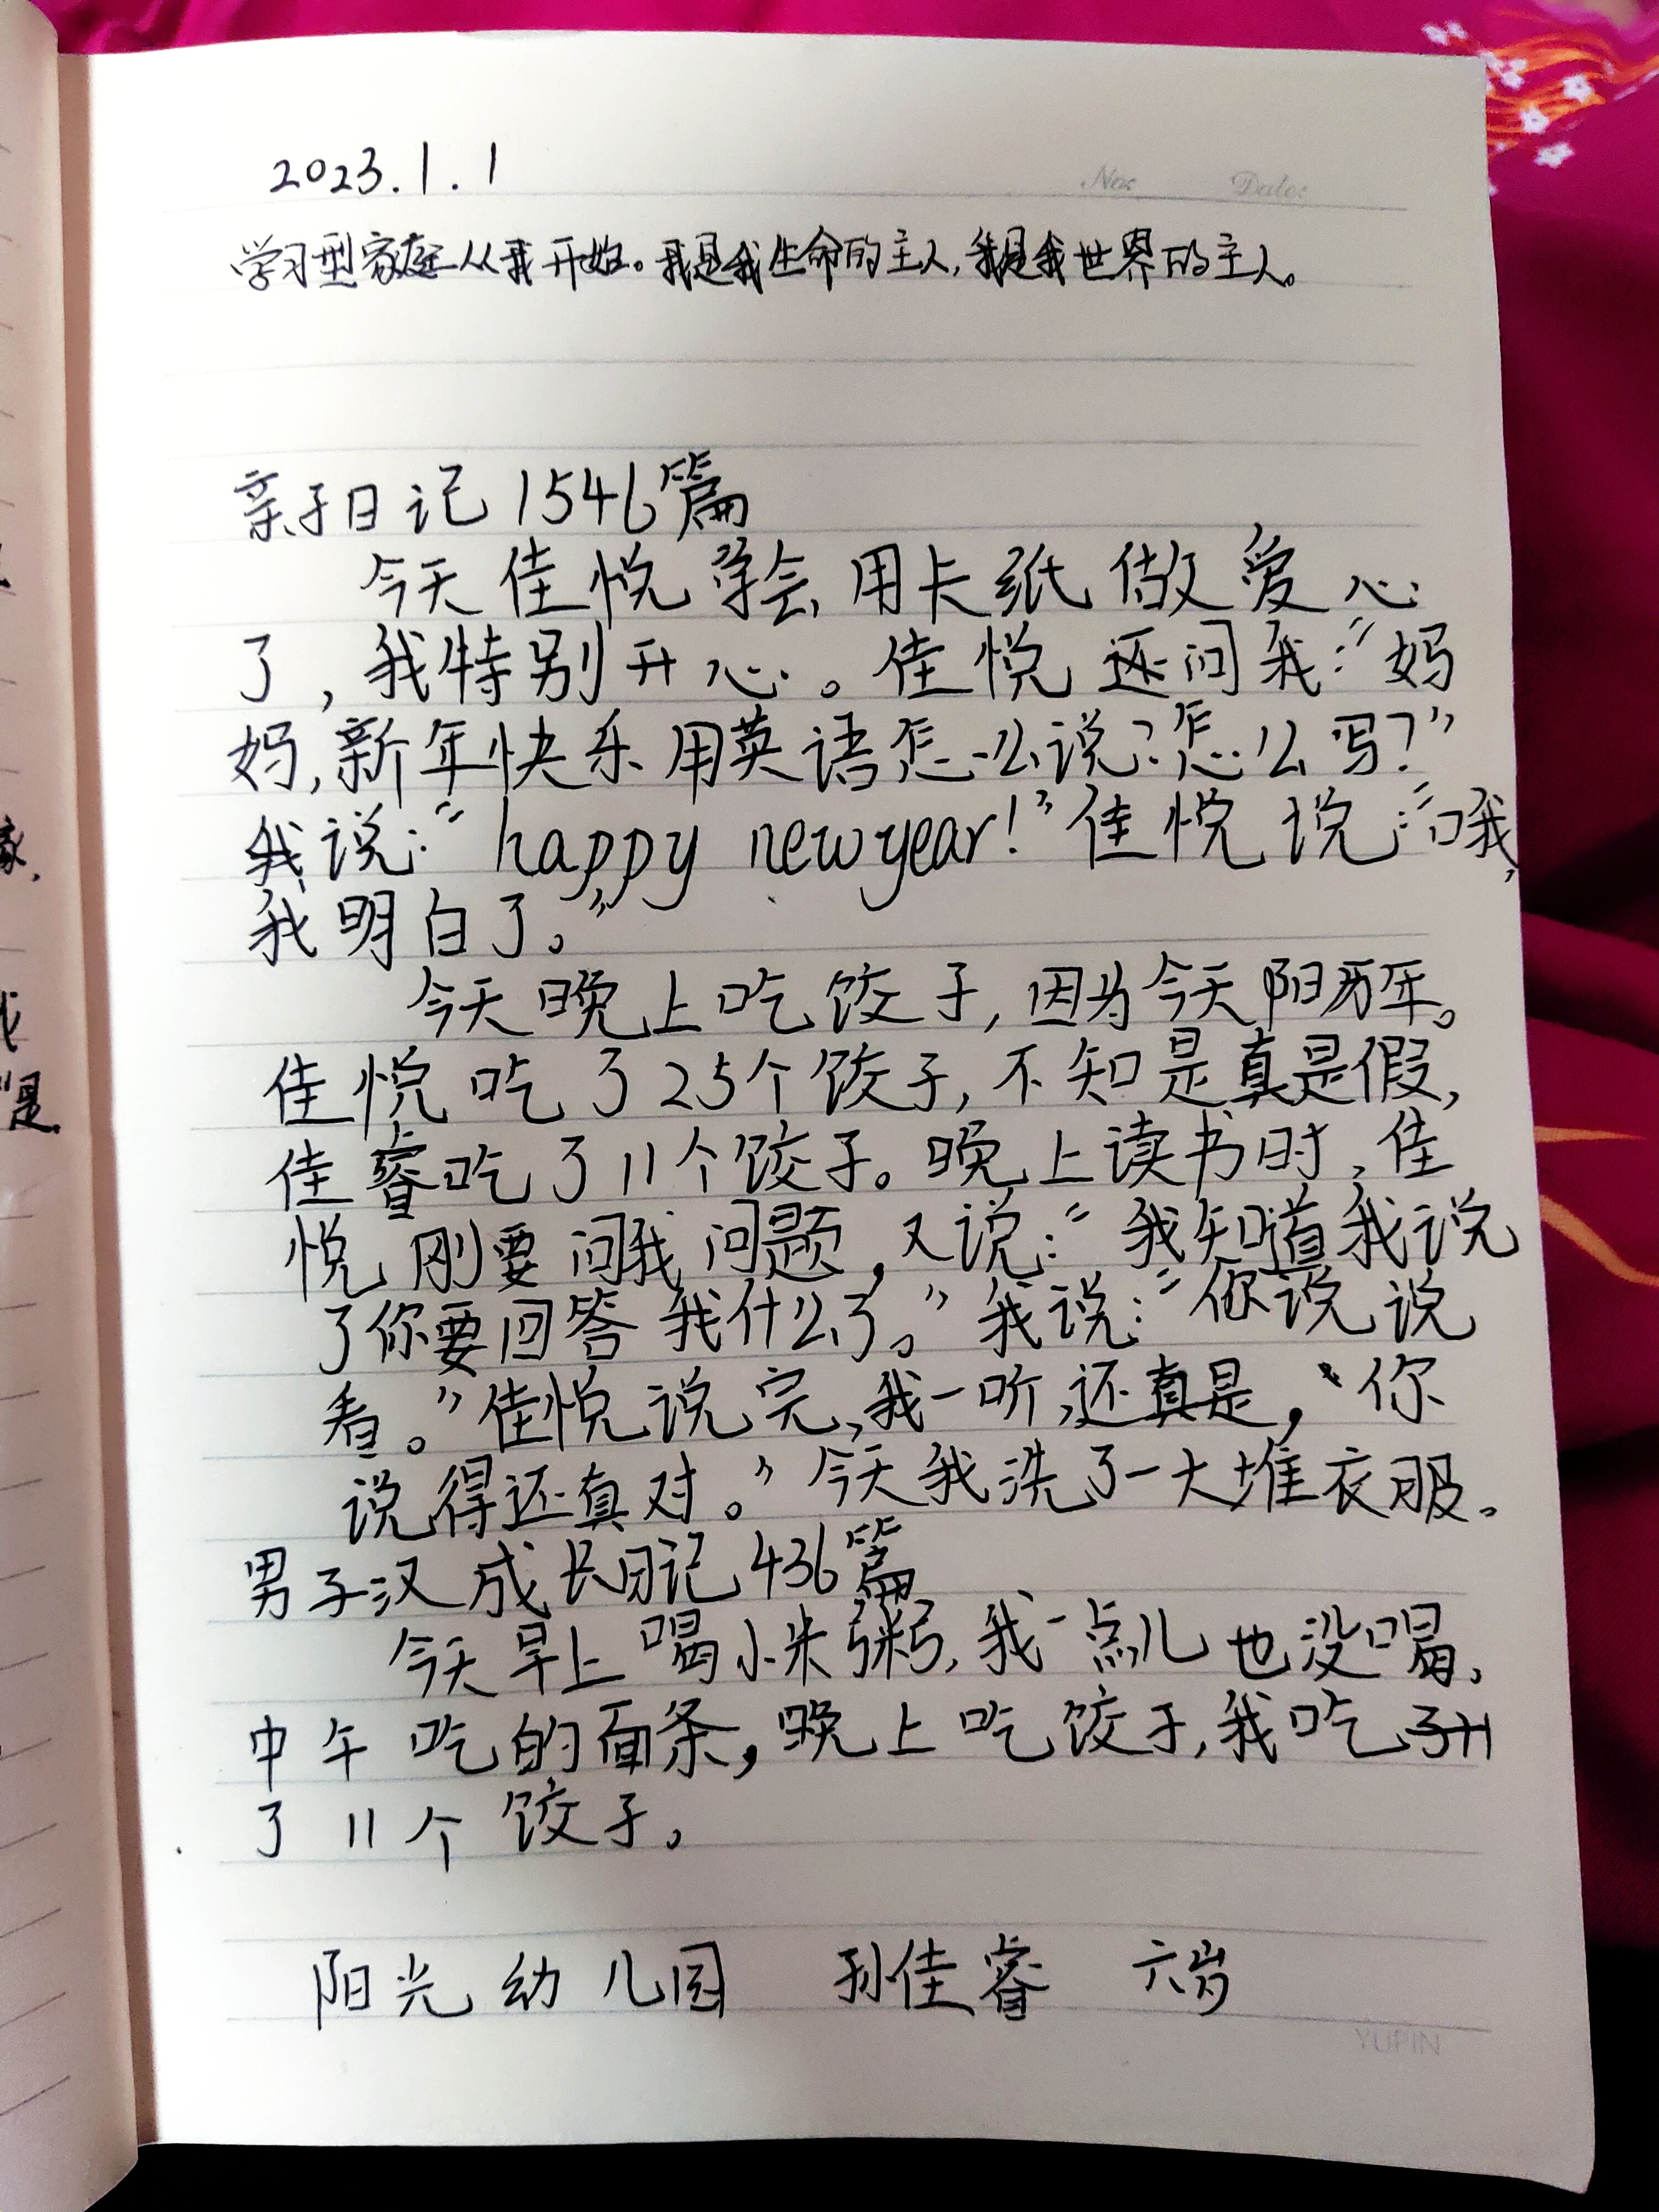 2023.1.1
No:
Date:
学习型家庭从我开始。我是我生命的主人,我是我世界的主人。
亲子日记1546篇
今天佳悦学会用卡纸做爱心
了,我特别开心。佳悦还问我:“妈
妈,新年快乐用英语怎么说?怎么写?”
我说:“happy new year!”佳悦说:“哦,
我明白了。”
今天晚上吃饺子,因为今天阳历年。
佳悦吃了25个饺子,不知是真是假,
佳睿吃了11个饺子。晚上读书时,佳
悦刚要问我问题,又说:“我知道我说
了你要回答我什么了。”我说:“你说说
看。”佳悦说完,我一听,还真是,“你
说得还真对。”今天我洗了一大堆衣服。
男子汉成长日记436篇
今天早上喝小米粥,我一点儿也没喝,
中午吃的面条,晚上吃饺子,我吃
了11个饺子。
阳光幼儿园 孙佳睿 六岁
YUPIN